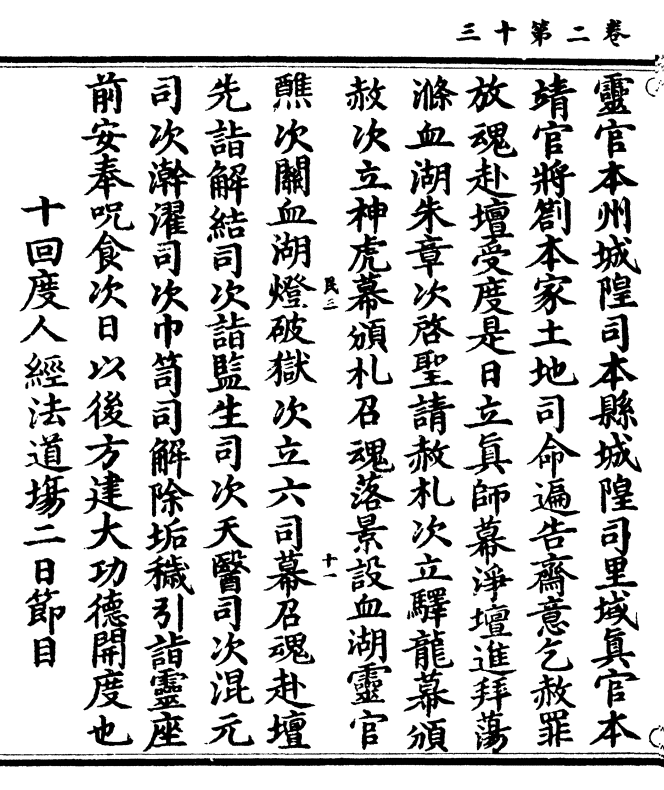 卷二第十三
靈官本州城隍司本縣城隍司里域眞官本
靖官將劄本家土地司命遍告齋意乞赦罪
放魂赴壇受度是日立眞師幕淨壇進拜蕩
滌血湖朱章次啓聖請赦札次立驛龍幕頒
赦次立神虎幕頒札召魂落景設血湖靈官
民三
十一
醮次關血湖燈破獄次立六司幕召魂赴壇
先詣解結司次詣監生司次天醫司次混元
司次澣濯司次巾笥司解除垢穢引詣靈座
前安奉呪食次日以後方建大功德開度也
十回度人經法道場二日節目